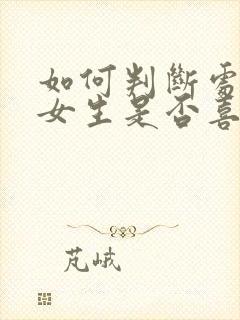 如何判断雷
女生是否喜
芃峨